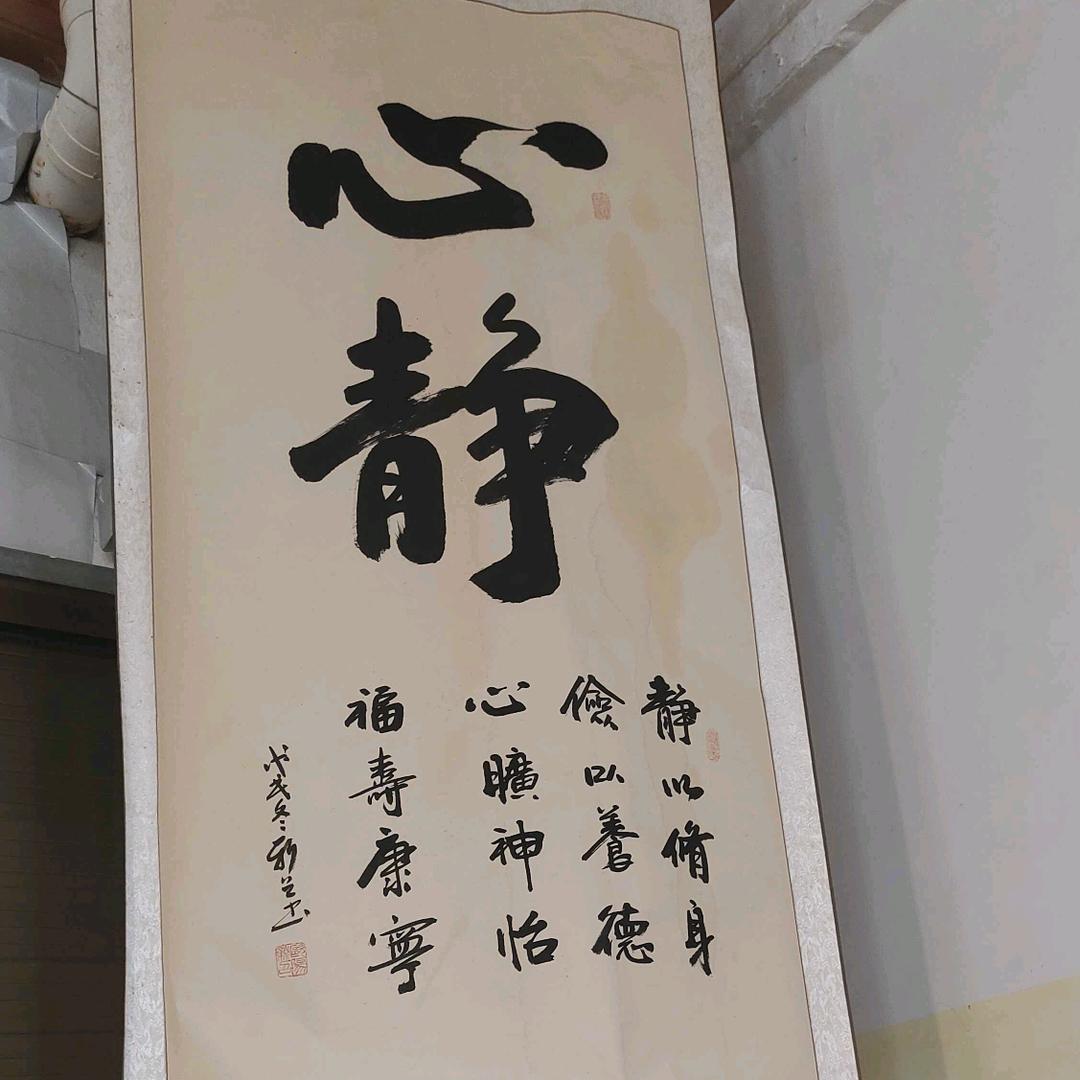 心静
静以脩身
儉以養德
心曠神怡
福壽康寧
戊戌冬新兰书